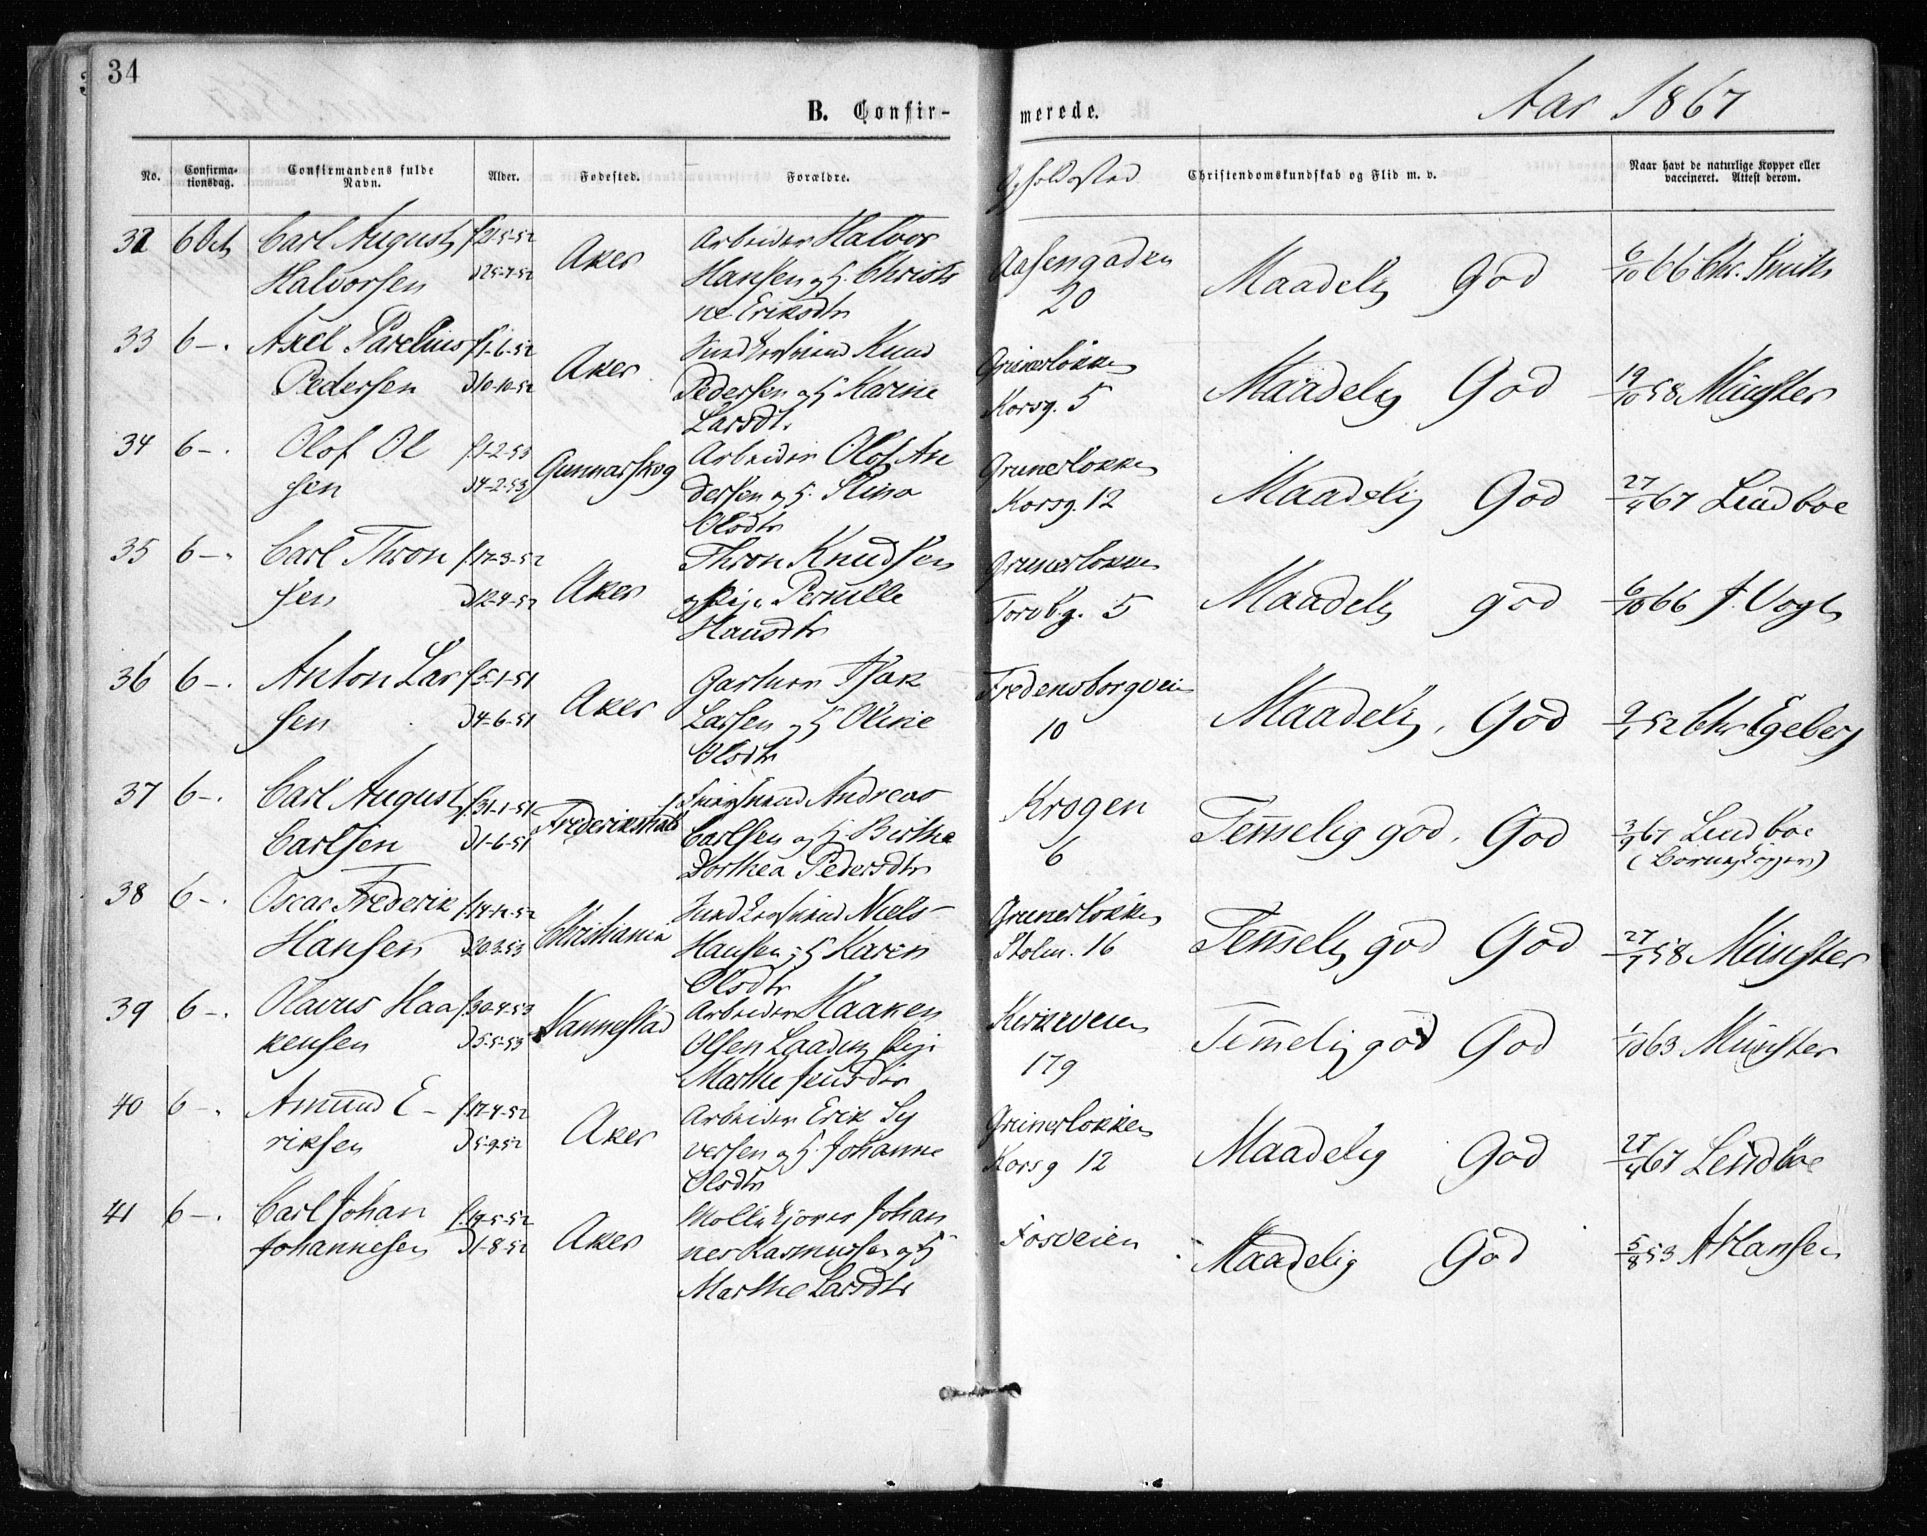 34
B. Confir-
merede.
Aar 1867
No.
Confirma-
tionsdag.
Confirmandens fulde
Navn.
Alder.
Fødested.
Forældre.
Opholdssted
Christendomskundskab og Flid m. v.
Naar havt de naturlige Kopper eller
vaccineret. Attest derom.
32 6 Oct Carl August f 21-5-52 Aker Arbeider Halvor Aasengaden Maadelig God 6/10 66 Chr. Smith
Halvorsen d 25-7-52 Hansen og H. Christi 20
ne Eriksdtr
33 6 -. Axel Parelius f 1-6-52 Aker Knud Grünerløkken Maadelig God 19/10 58 Münster
Pedersen D 10-10-52 Pedersen og H Karine Korsg. 5
Larsdt.
34 6 -. Olof Ol f 1-2-53 Gunnarskog Arbeider Olof An Grunerløkken Maadelig God 27/4 67 Lindboe
sen D 4-2-53 dersen og H. Stina Korsg. 12
Olsdtr
35 6 -. Carl Thron f. 17-3-52 Aker Thron Knudsen Grunerløkken Maadelig god 6/10 66 J. Vogt
sen D 12-4-52 og Pige Pernille Torvbg. 5
Hansdtr
36 6 -. Anton Lar f 5-1-51 Aker Gartner Isak Fredensborgveien Maadelig. God 9/1 52 Chr Egeberg
sen D 4-6-51 Larsen og H Oline 10
Olsdtr
37 6 -. Carl August f. 31-1-51 Frederikshald Andreas Krogen Temmelig god. God 3/9 67 Lindboe
Carlsen D 1-6-51 Carlsen og H Birthe 6 (Børnekopper)
Dorthea Pedersdtr
38 6 -. Oscar Frederik f 14-12-52 Christiania Niels Grunerløkken Temmelig god God 27/7 58 Münster
Hansen D 20-3-53 Hansen og H Karen Stolm. 16
Olsdtr
39 6 -. Olavus Haa f 30-4-53 Nannestad Arbeider Haaken Kirkeveien Temmelig god God 1/10 63 Münster
kensen D 5-5-53 Olsen Laading Pige 179
Marthe Jensdtr
40 6 -. Amund E- f. 17-4-52 Aker Arbeider Erik Sy Grünerløkken Maadelig God 27/4 67 Lindboe
riksen D 5-9-52 versen og H. Johanne Korsg 12
Olsdtr
41 6 -. Carl Johan f. 19-5-52 Aker Johan Fosveien Maadelig God 5/8 53 A Hansen
Johannesen D 1-8-52 nes Rasmussen og H
Marthe Larsdtr